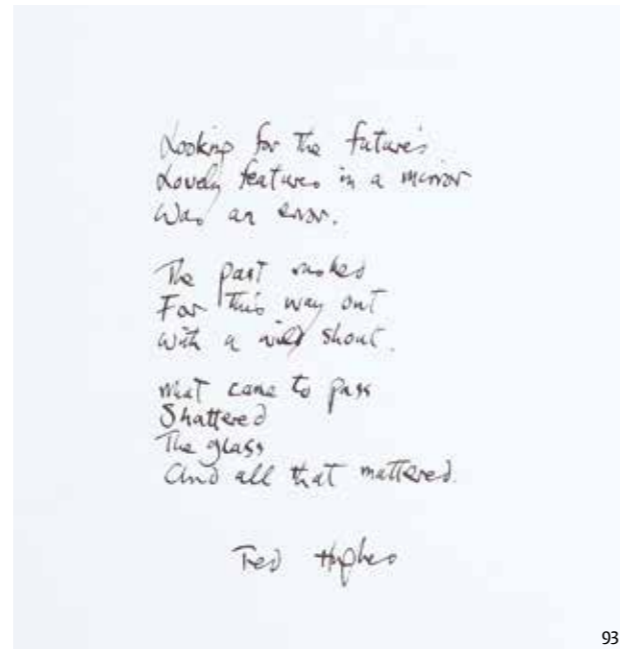 Looking for the future's
Lovely features in a mirror
Was an error.
The past rushed
For this way out
With a wild shout.
What came to pass
Shattered
The glass
And all that mattered.
Ted Hughes
93